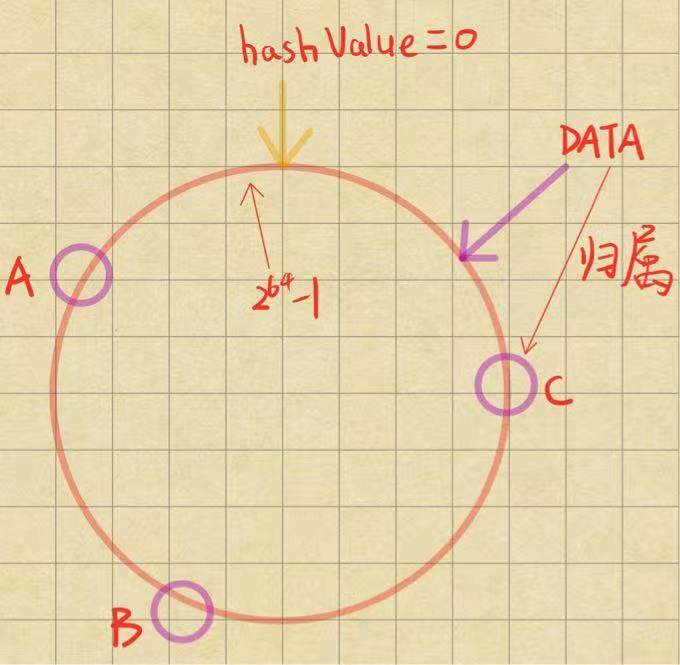 hashValue=0
DATA
归属
A
2⁶⁴-1
C
B